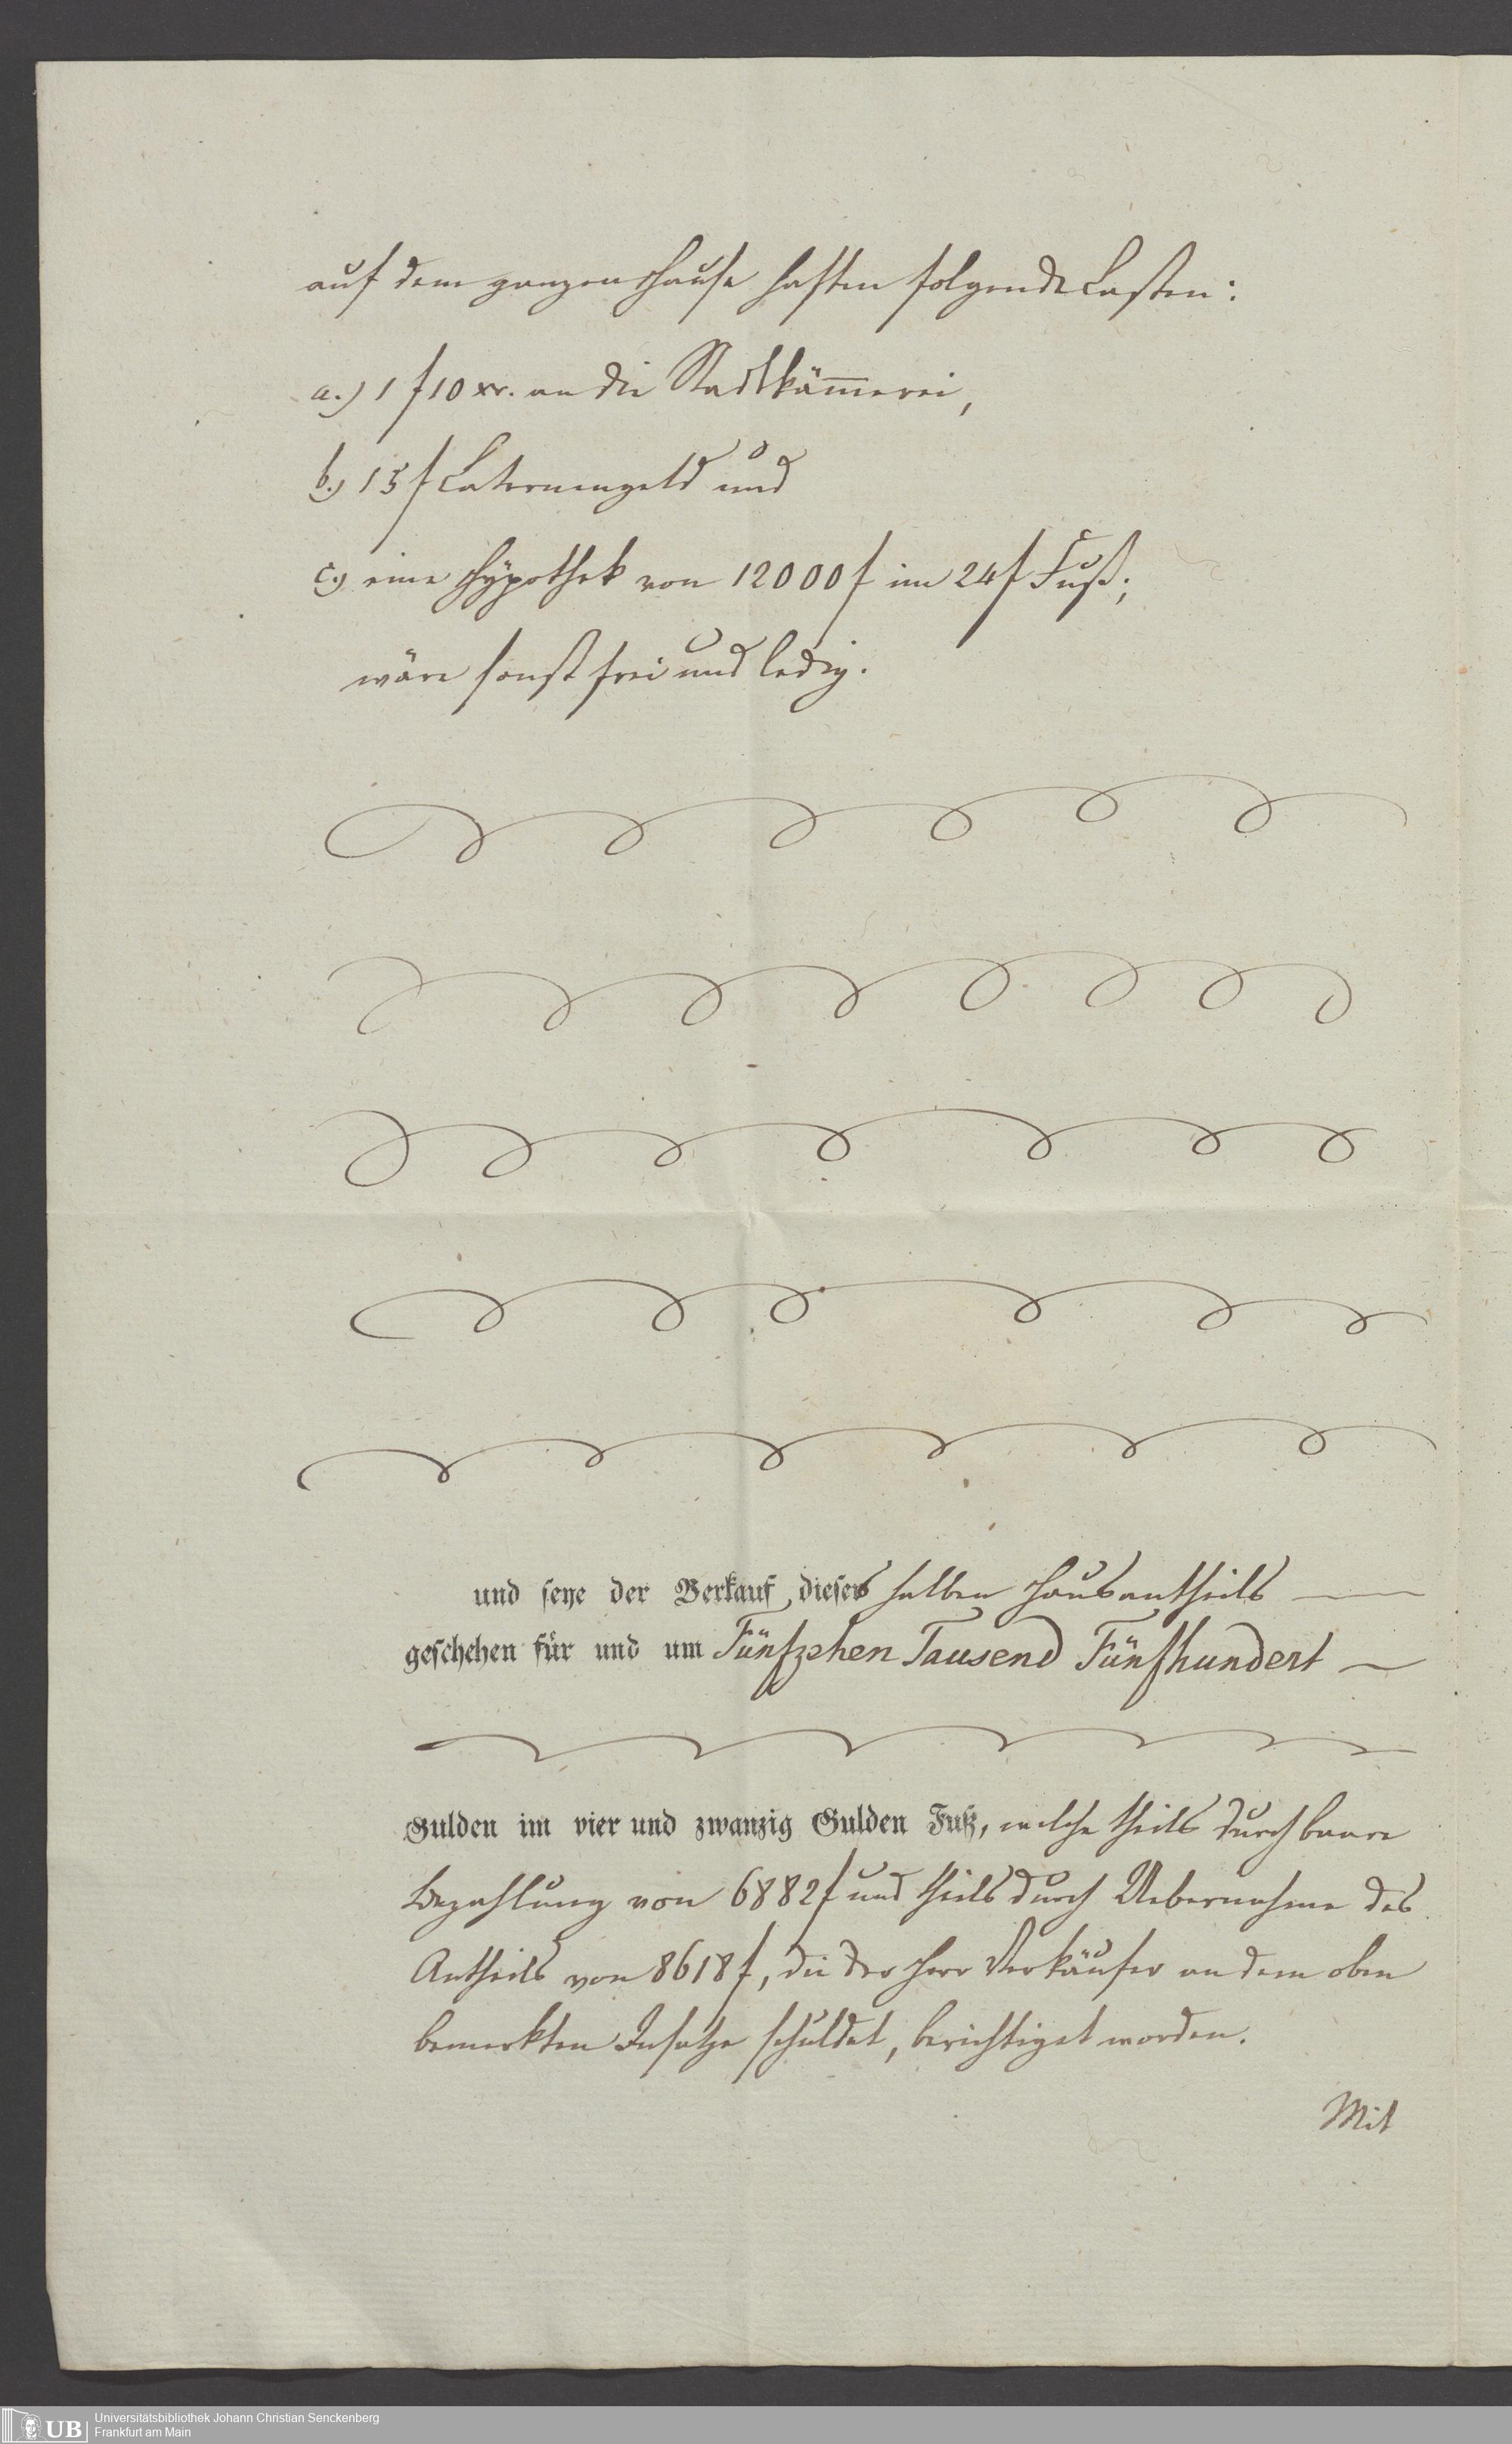 auf dem ganzen Hause haften folgende Lasten:
a.) 1 f 10 xr. an die Stadtkäm̅erei,
b.) 15 f Laternengeld und
c.) eine Hypothek von 12000 f im 24 f Fuß;
wäre sonst frei und ledig.
und seye der Verkauf dieses halben Hausantheils
geschehen für und um Fünfzehen Tausend Fünfhundert
Gulden im vier und zwanzig Gulden Fuß, welche theils durch baare
Bezahlung von 6882 f und theils durch Uebernahme des
Antheils von 8618 f, die der Herr Verkäufer an dem oben
bemerkten Insatze schuldet, berichtiget worden.
Mit
UB
Universitätsbibliothek Johann Christian Senckenberg
Frankfurt am Main